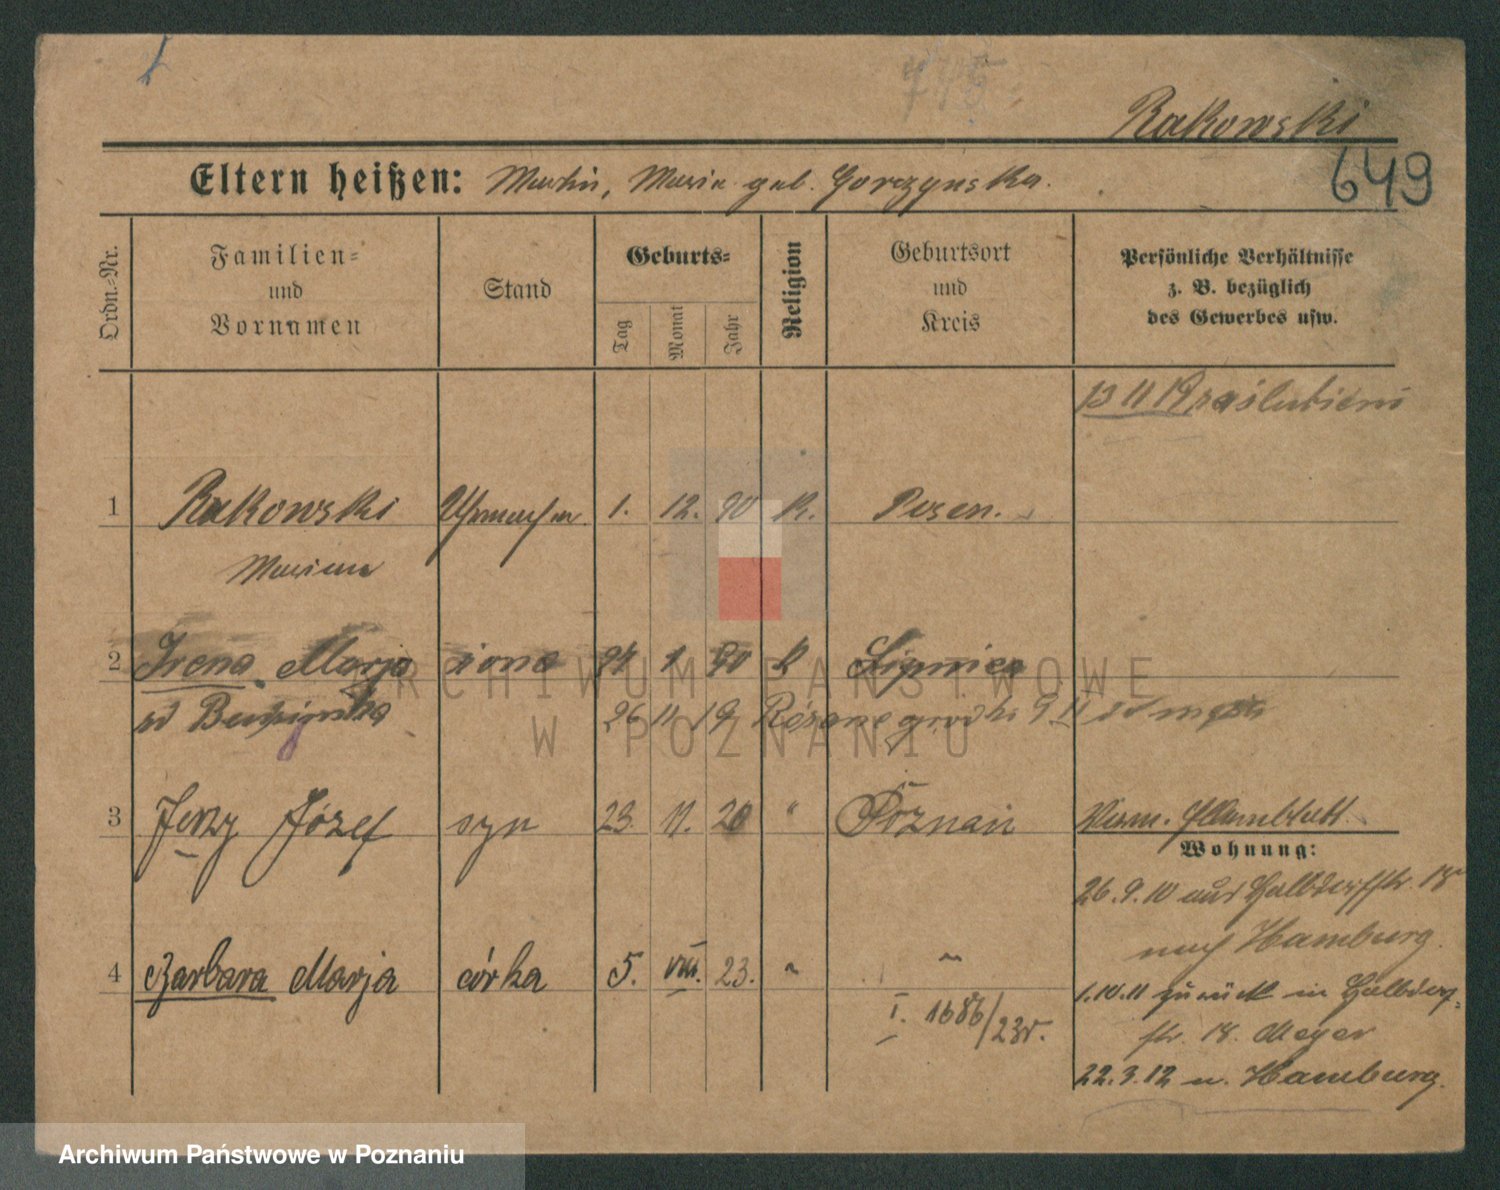 Rakowski
649
Eltern heißen: Martin, Maria geb. Gorczynska.
Ordn.-Nr.
Familien- und Vornamen
Stand
Geburts-
Tag
Monat
Jahr
Religion
Geburtsort und Kreis
Persönliche Verhältnisse
z. B. bezüglich
des Gewerbes usw.
13 11 19 zaślubieni
1 Rakowski Uhrmacher. 1. 12. 90 K. Posen.
Marian
2 Irena Marja żona 1 K
26 11 19
3 Jerzy Józef syn 23. 11. 20 " Poznań
Wohnung:
26.9.10 aus Halbdorfstr. 18
nach Hamburg.
4 Barbara Marja córka 5. VIII. 23. " "
1.10.11 zurück in Halbdorf-
I. 1686/23r.
str. 18. Meyer
22.3.12 n. Hamburg.
ARCHIWUM PAŃSTWOWE
W POZNANIU
Archiwum Państwowe w Poznaniu